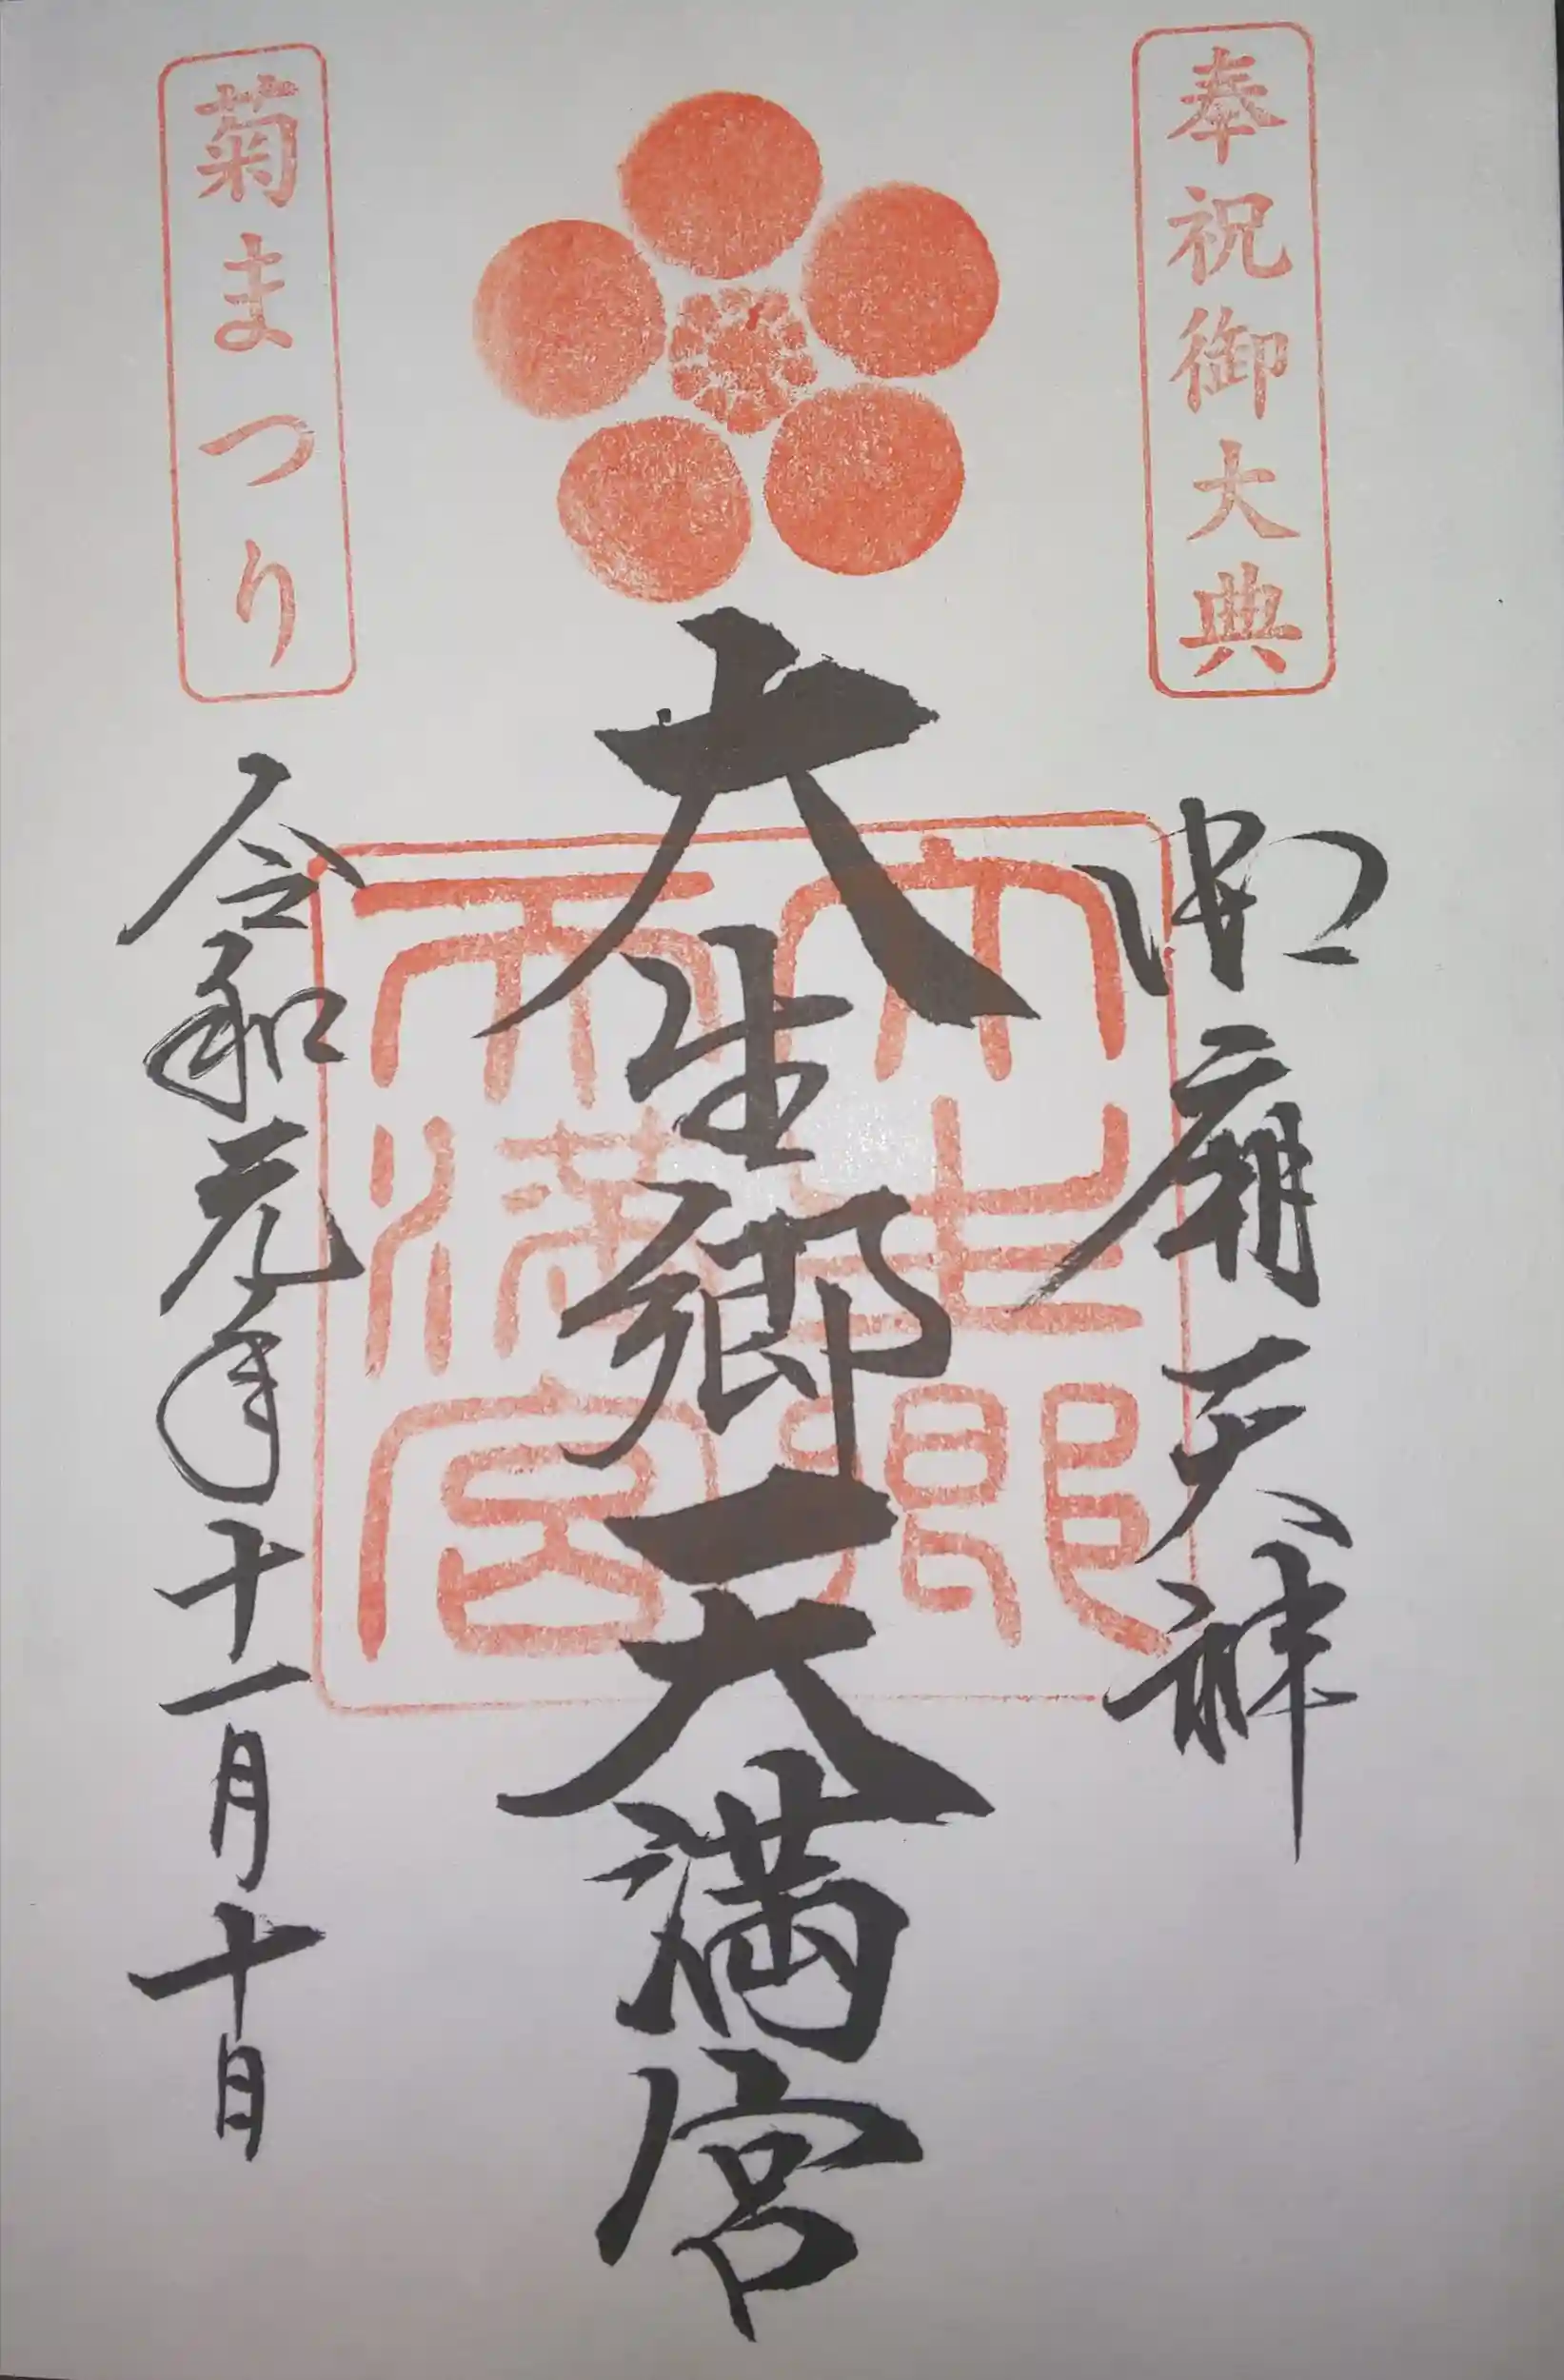 奉祝御大典
御廟天神
大生郷天満宮
大生郷
天満宮
菊まつり
令和元年十一月十日